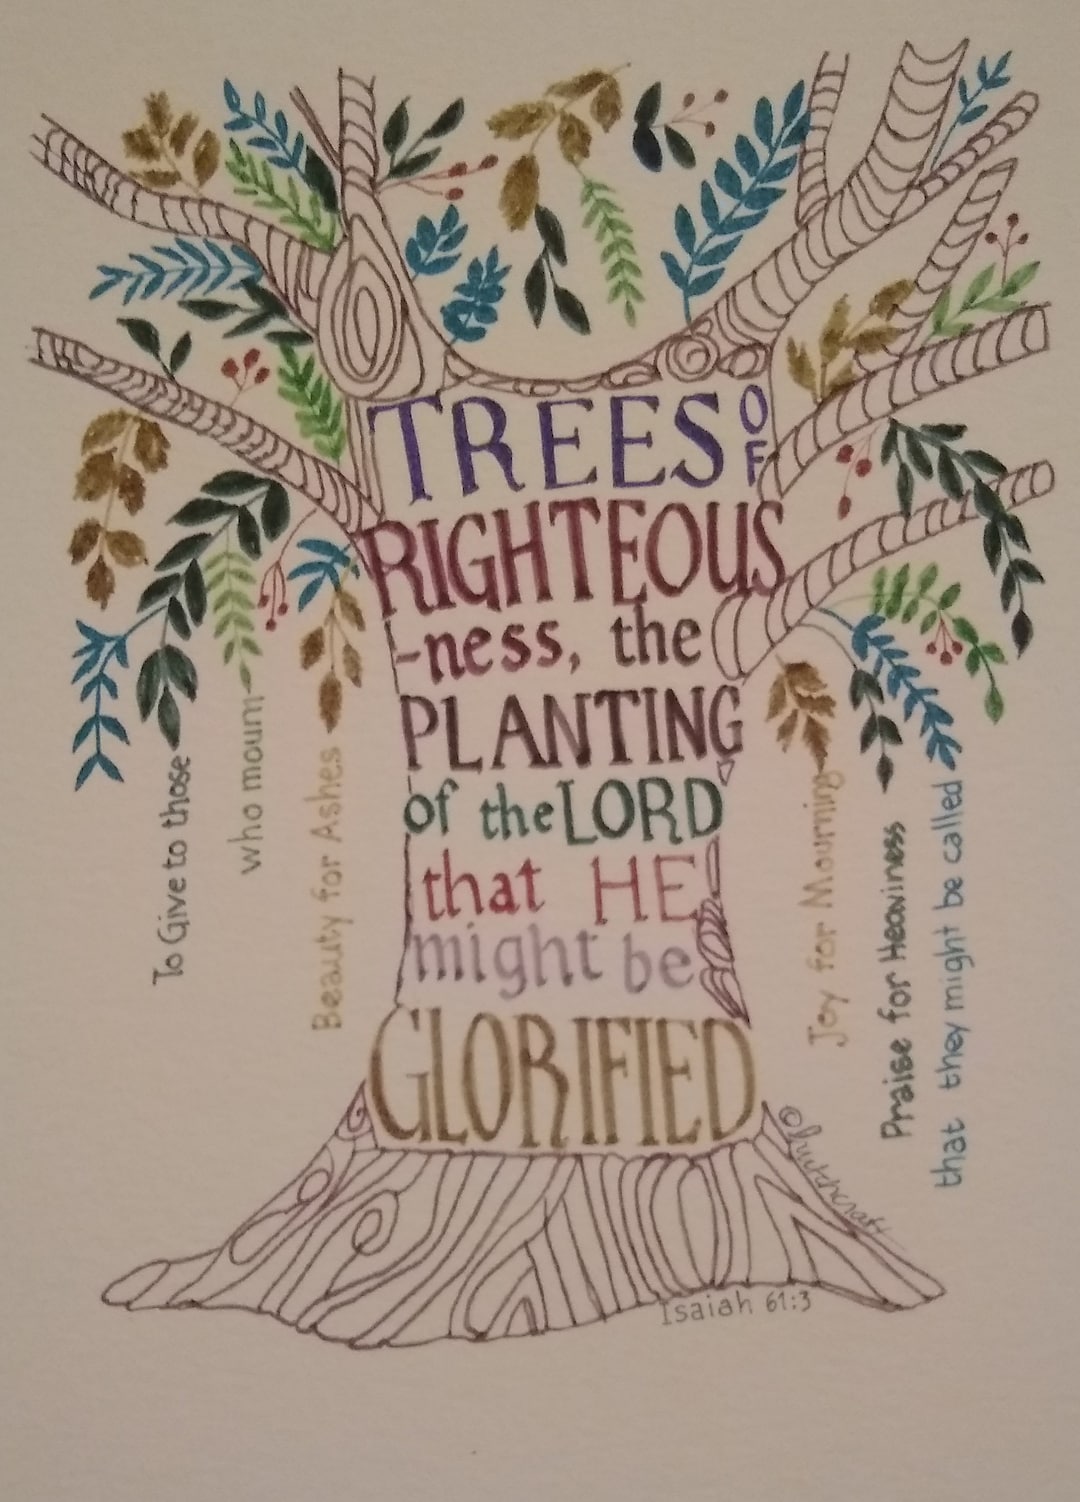 To Give to those
who mourn
Beauty for Ashes
Joy for Mourning
Praise for Heaviness
that they might be called
TREES OF
RIGHTEOUS
-ness, the
PLANTING
of the LORD
that HE
might be
GLORIFIED
Isaiah 61:3